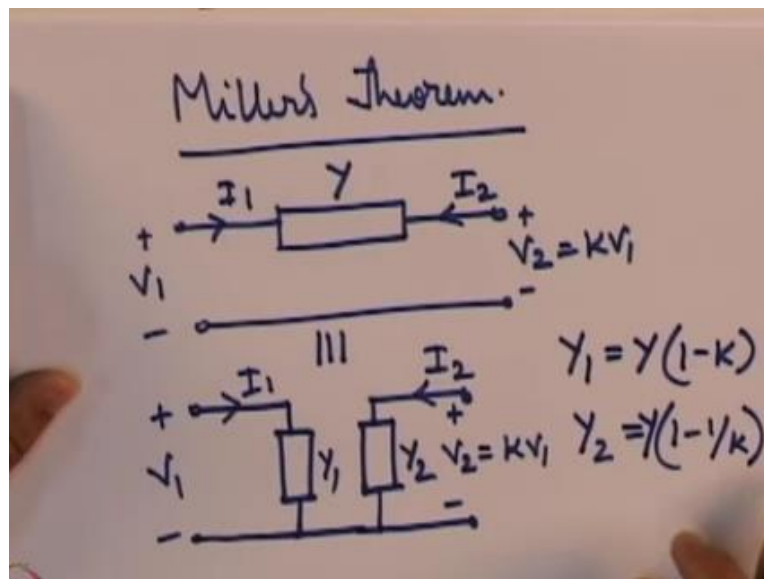 Miller's Theorem.
I1 Y I2
+ +
V1 V2 = KV1
- -
I1 I2 Y1 = Y(1-K)
+ +
V1 Y1 Y2 V2 = KV1 Y2 = Y(1-1/K)
- -